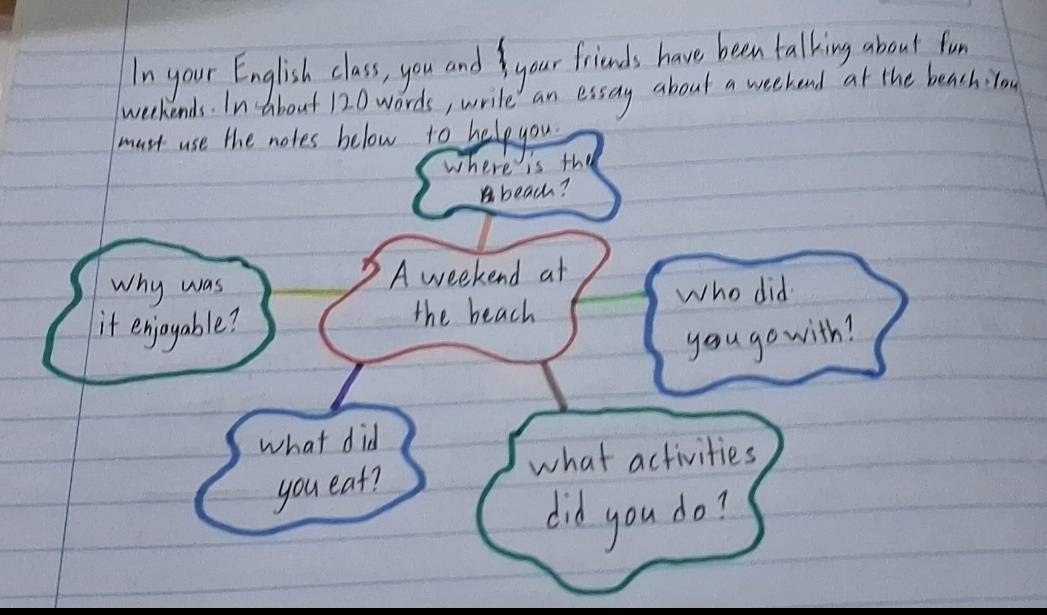 In your English class, you and your friends have been talking about fun
weekends. In about 120 words, write an essay about a weekend at the beach. You
must use the notes below to help you.
where is the
beach?
A weekend at
the beach
Why was
it enjoyable?
Who did
you go with?
what did
you eat?
what activities
did you do?